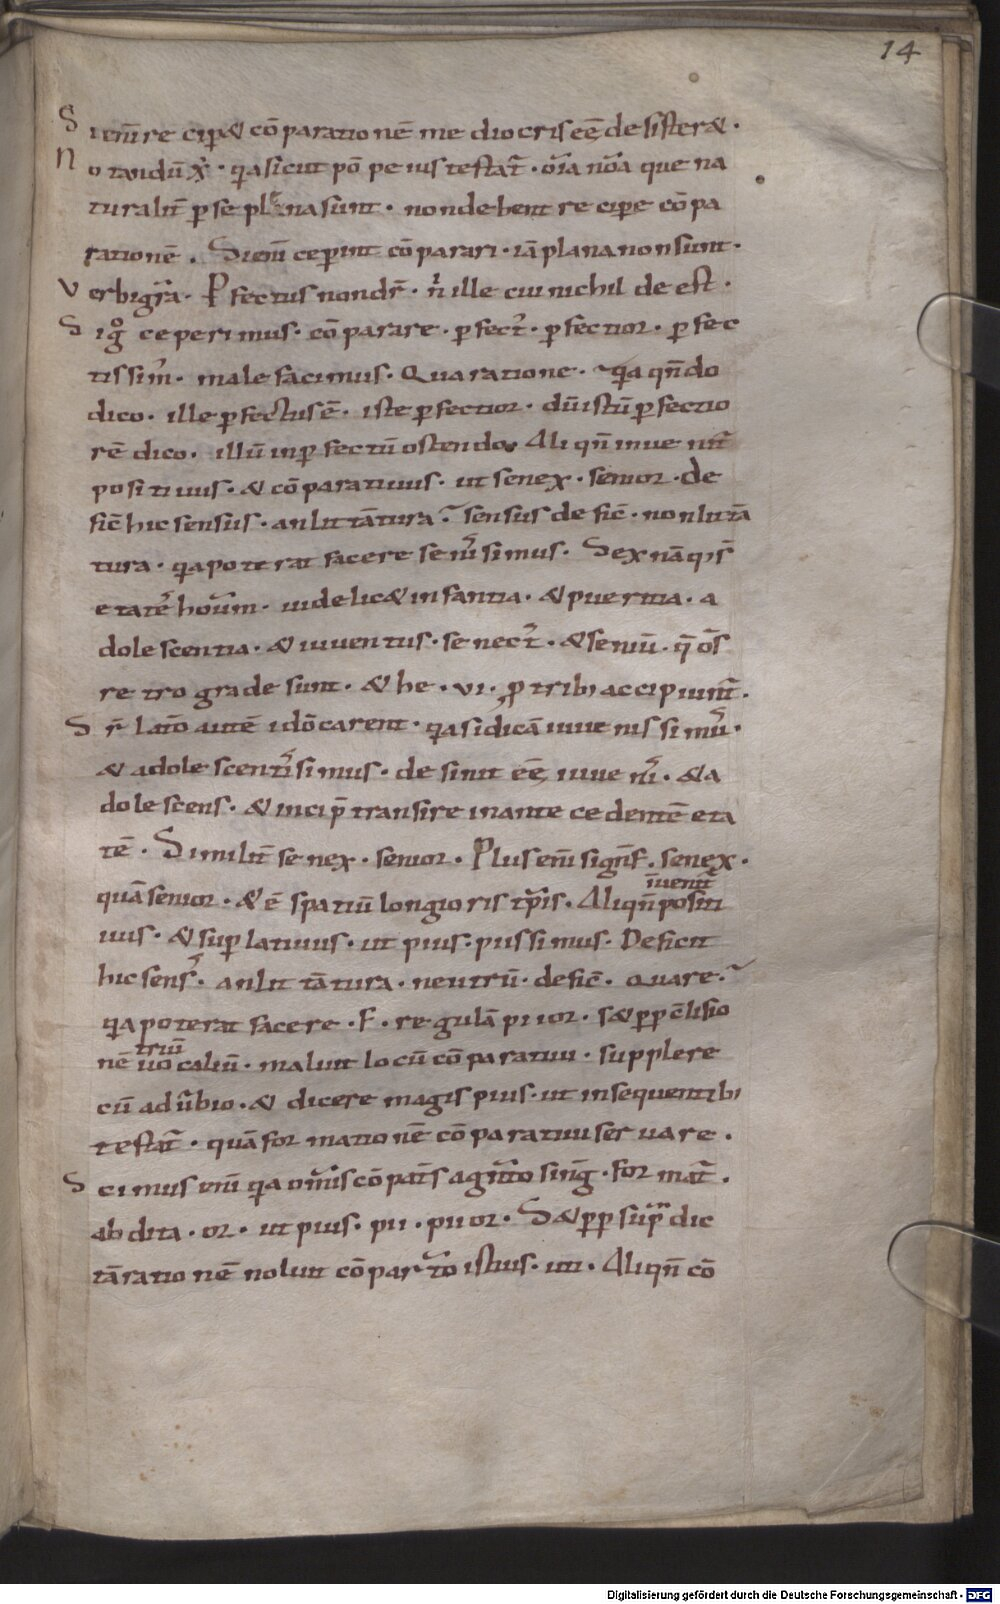 14
S i enī re cip& cō paratio nē me diocris eē desister&.
N o tandū ẋ · q̄a sicut pō pe ius testat̄ · om̄ia nōa que na
turalit̄ p̱ se plena sunt · non debent re cipe cō pa
rationē . Si enī ceperint cō parari · iā plana non sunt ·
V erbi gr̄a · P̱ fectus non dr̄ · n̄ ille cui nichil de est .
S i gͦ ceperi mus · cō parare · p̱ fect᷒ · p̱ fectior · p̱ fec
tissim᷒ · male facimus · Qua ratione · q̄a qn̄do
dico · ille p̱ fectus ē · iste p̱ fectior · dū istū p̱ fectio
rē dico · illū inp̱ fectū ostendo. Ali qn̄ inue nit̄
positiuus · & cō paratiuus · ut senex · senior · de
fic̄ hic sensus · an lit tāt ura · sensus de fic̄ · non lit tā
tura · q̄a pote rat facere seniissimus · Sex nāq̨ s̄
etatēs hoīum · uidelic& infantia · & pueritia · a
dolescentia · & iuuentus · senect᷒ · & seniū · q̄ om̄s
re tro grade sunt · & he · vi · p̱ tribus accipiunt̄ .
S r̄ latio autē idō carent · q̄a si dicā iuue nissimus ·
& adole scentissimus · de sinit eē iuue nis · & a
dolescens · & incip̄ transire in ante ce dentē eta
tē · Similit̄ se nex · senior · Plus enī signīf · senex ·
quā senior · & ē spatiū longio ris tp̄is · Ali qn̄ positi
īuenit̄
uus · & sup̱ latiuus · ut pius · piissimus · Deficit
hic sens᷒ · an lit tā tura · neutrū · defic̄ · Quare ·
q̄a poterat facere · F · regulā pi ior · s& pp̄ c̄lisio
nē uocaliū · malunt locū cō paratiui · supplere
triū
cū aduerbio · & dicere magis pius · ut in sequentibus
testat̄ · quā for matio nē cō paratiui ser uare .
S cimus enī q̄a om̄is cō pat̄s a gn̄ito sinḡ · for mat̄ .
ab dita · or · ut pius · pii · pii or · S& pp̄ sup̱ dic
tā ratio nē nolunt cō par̄ito istius · uti · Ali qn̄ cō
Digitalisierung gefördert durch die Deutsche Forschungsgemeinschaft · DFG